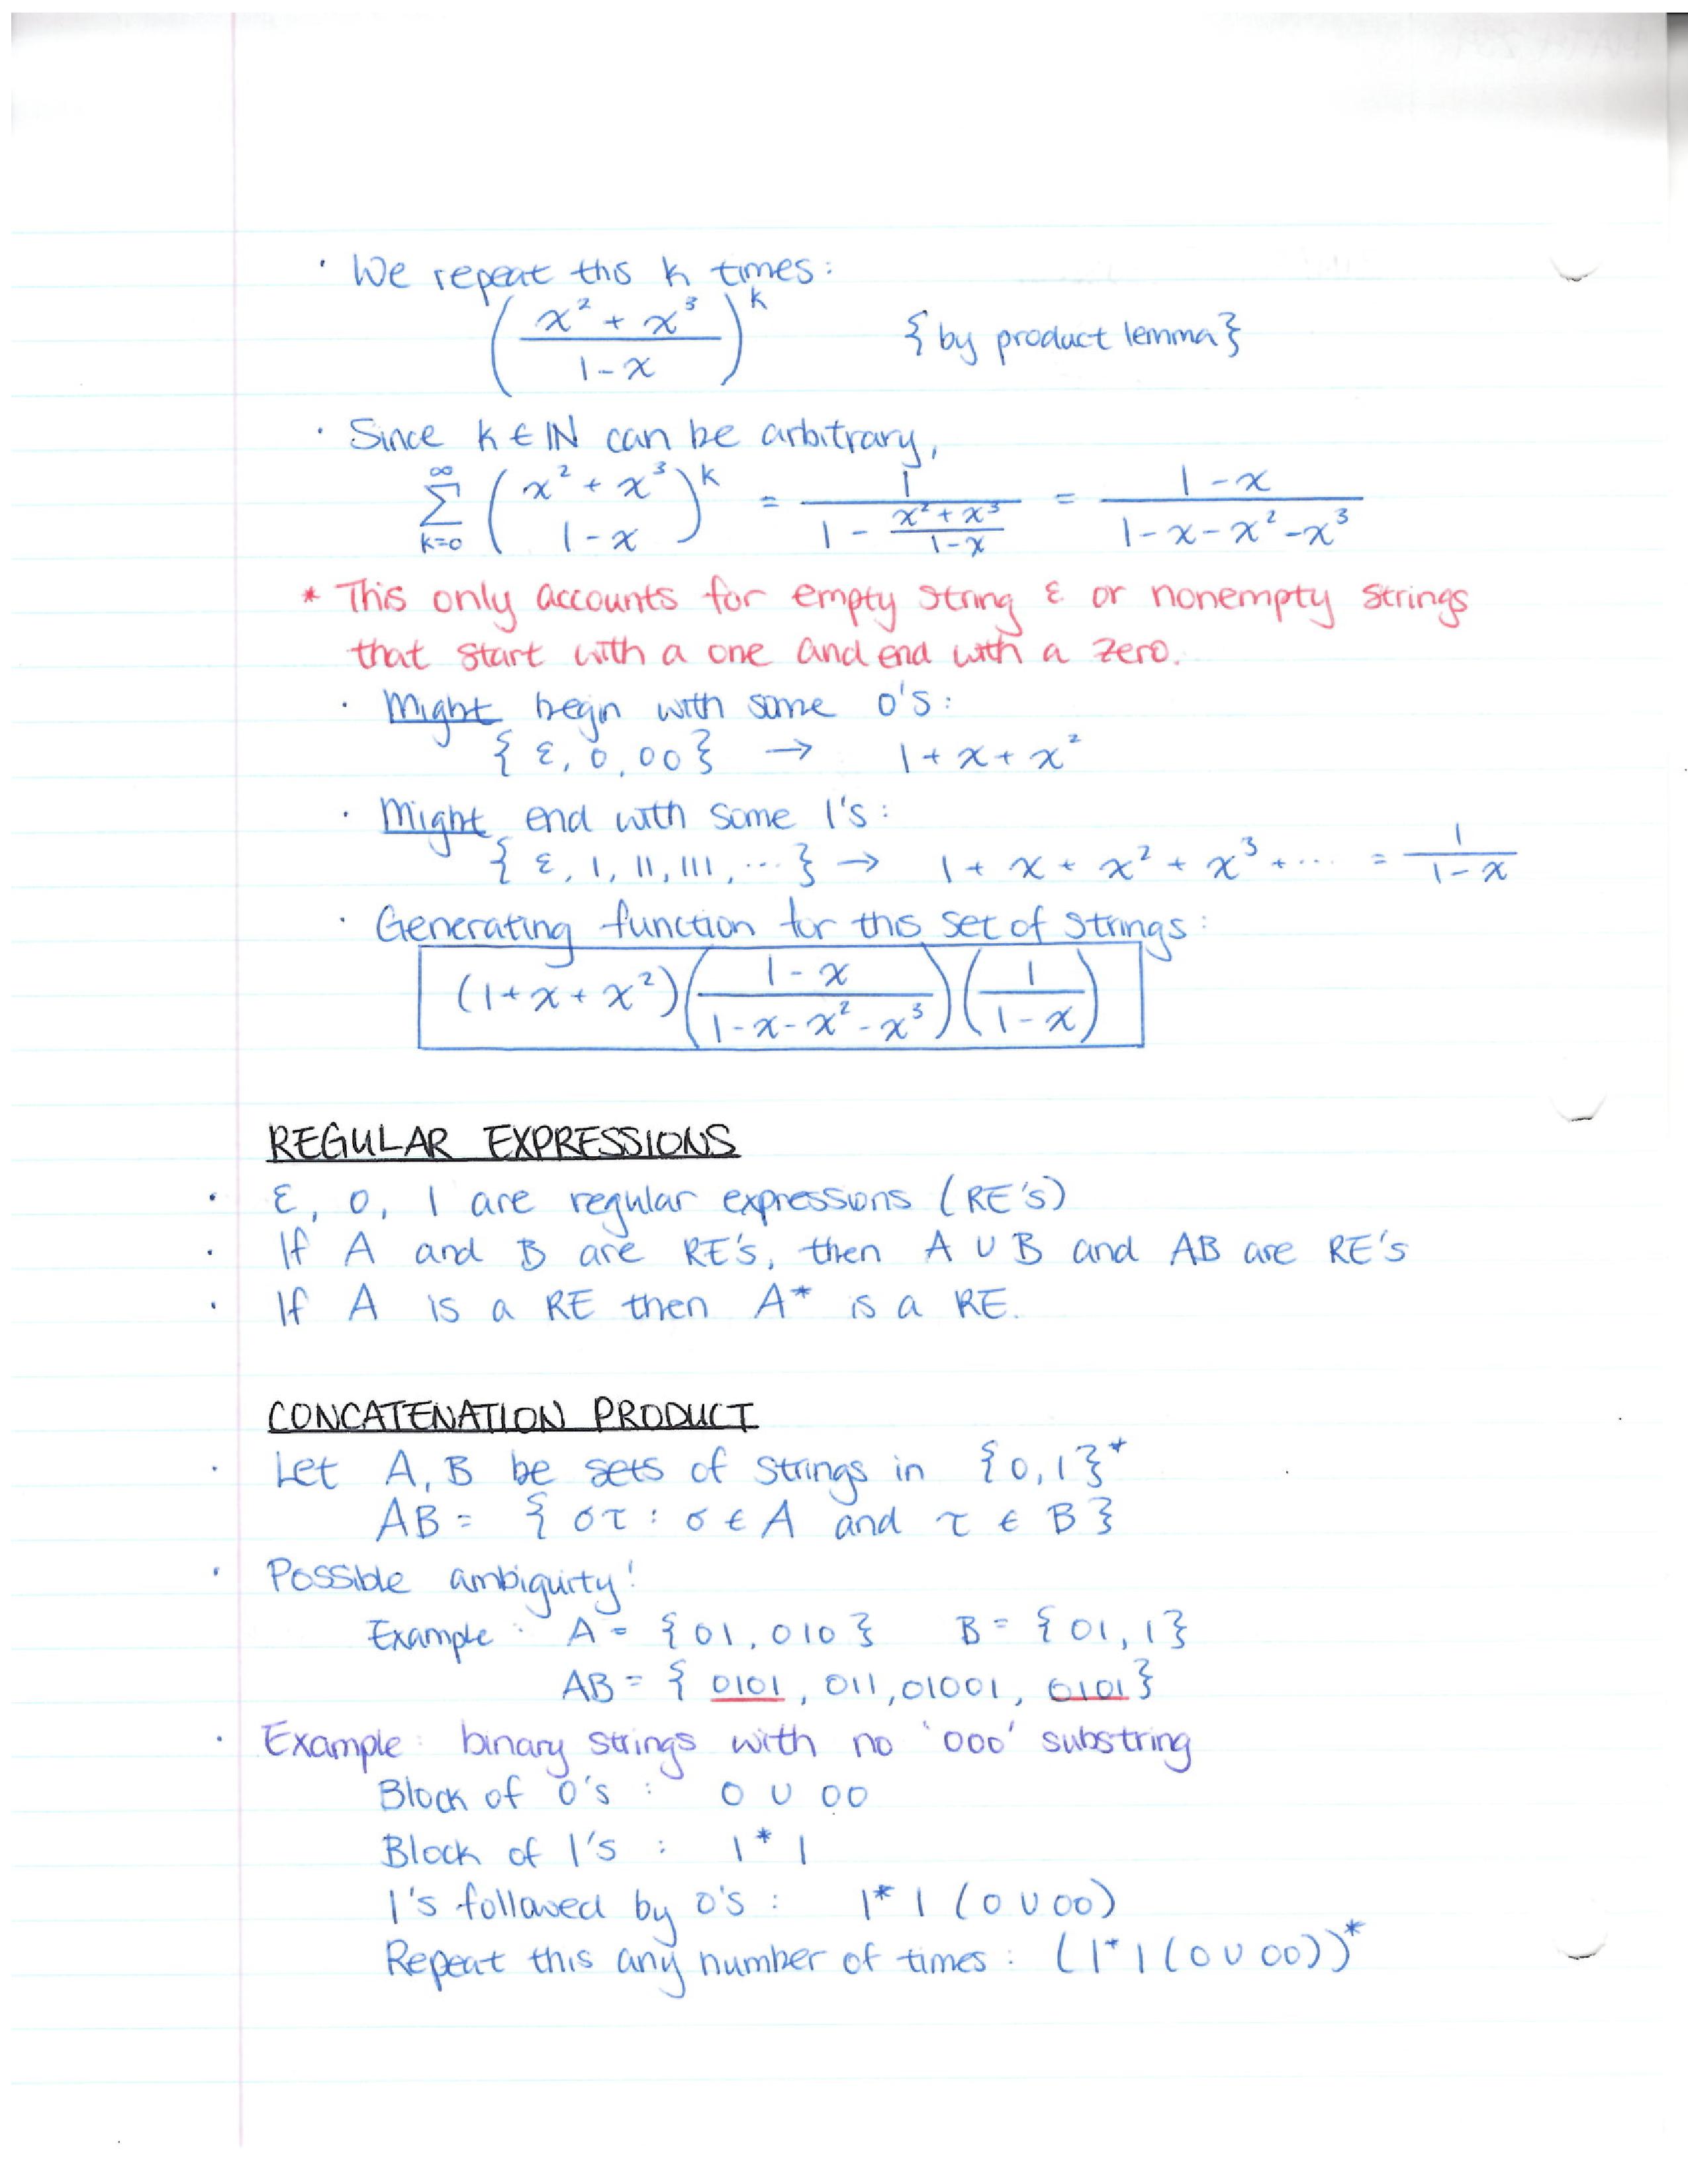 · We repeat this k times:
( (x² + x³) / (1 - x) )^k    {by product lemma}
· Since k ∈ ℕ can be arbitrary,
∑_{k=0}^{∞} ( x² + x³ / 1 - x )^k = 1 / (1 - (x² + x³)/(1-x)) = (1 - x) / (1 - x - x² - x³)
* This only accounts for empty string ε or nonempty strings
that start with a one and end with a zero.
· Might begin with some 0's:
{ ε, 0, 00 } → 1 + x + x²
· Might end with some 1's:
{ ε, 1, 11, 111, ... } → 1 + x + x² + x³ + ... = 1 / (1 - x)
· Generating function for this set of strings:
(1 + x + x²) ( (1 - x) / (1 - x - x² - x³) ) ( 1 / (1 - x) )
REGULAR EXPRESSIONS
· ε, 0, 1 are regular expressions (RE's)
· If A and B are RE's, then A ∪ B and AB are RE's
· If A is a RE then A* is a RE.
CONCATENATION PRODUCT
· Let A, B be sets of strings in {0,1}*
AB = { στ : σ ∈ A and τ ∈ B }
· Possible ambiguity!
Example: A = {01, 010}   B = {01, 1}
AB = { 0101, 011, 01001, 0101 }
· Example: binary strings with no '000' substring
Block of 0's : 0 ∪ 00
Block of 1's : 1*1
1's followed by 0's : 1*1(0 ∪ 00)
Repeat this any number of times : (1*1(0 ∪ 00))*